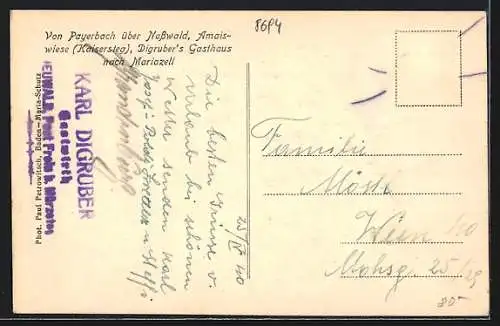 8694
Von Payerbach über Naßwald, Amais-
wiese (Kaisersteg), Digruber's Gasthaus
nach Mariazell
KARL DIGRUBER
Gastwirth
NEUWALD, Post Frein b. Mürzsteg
Phot. Paul Petrowitsch, Baden - Maria-Schutz
Die besten Grüsse v.
Urlaub bei schönen
Wetter senden Karl
Josef u. Steffi
25/IV 40
Familie
Mössl
Wien
Mohsg. 25/29
80-